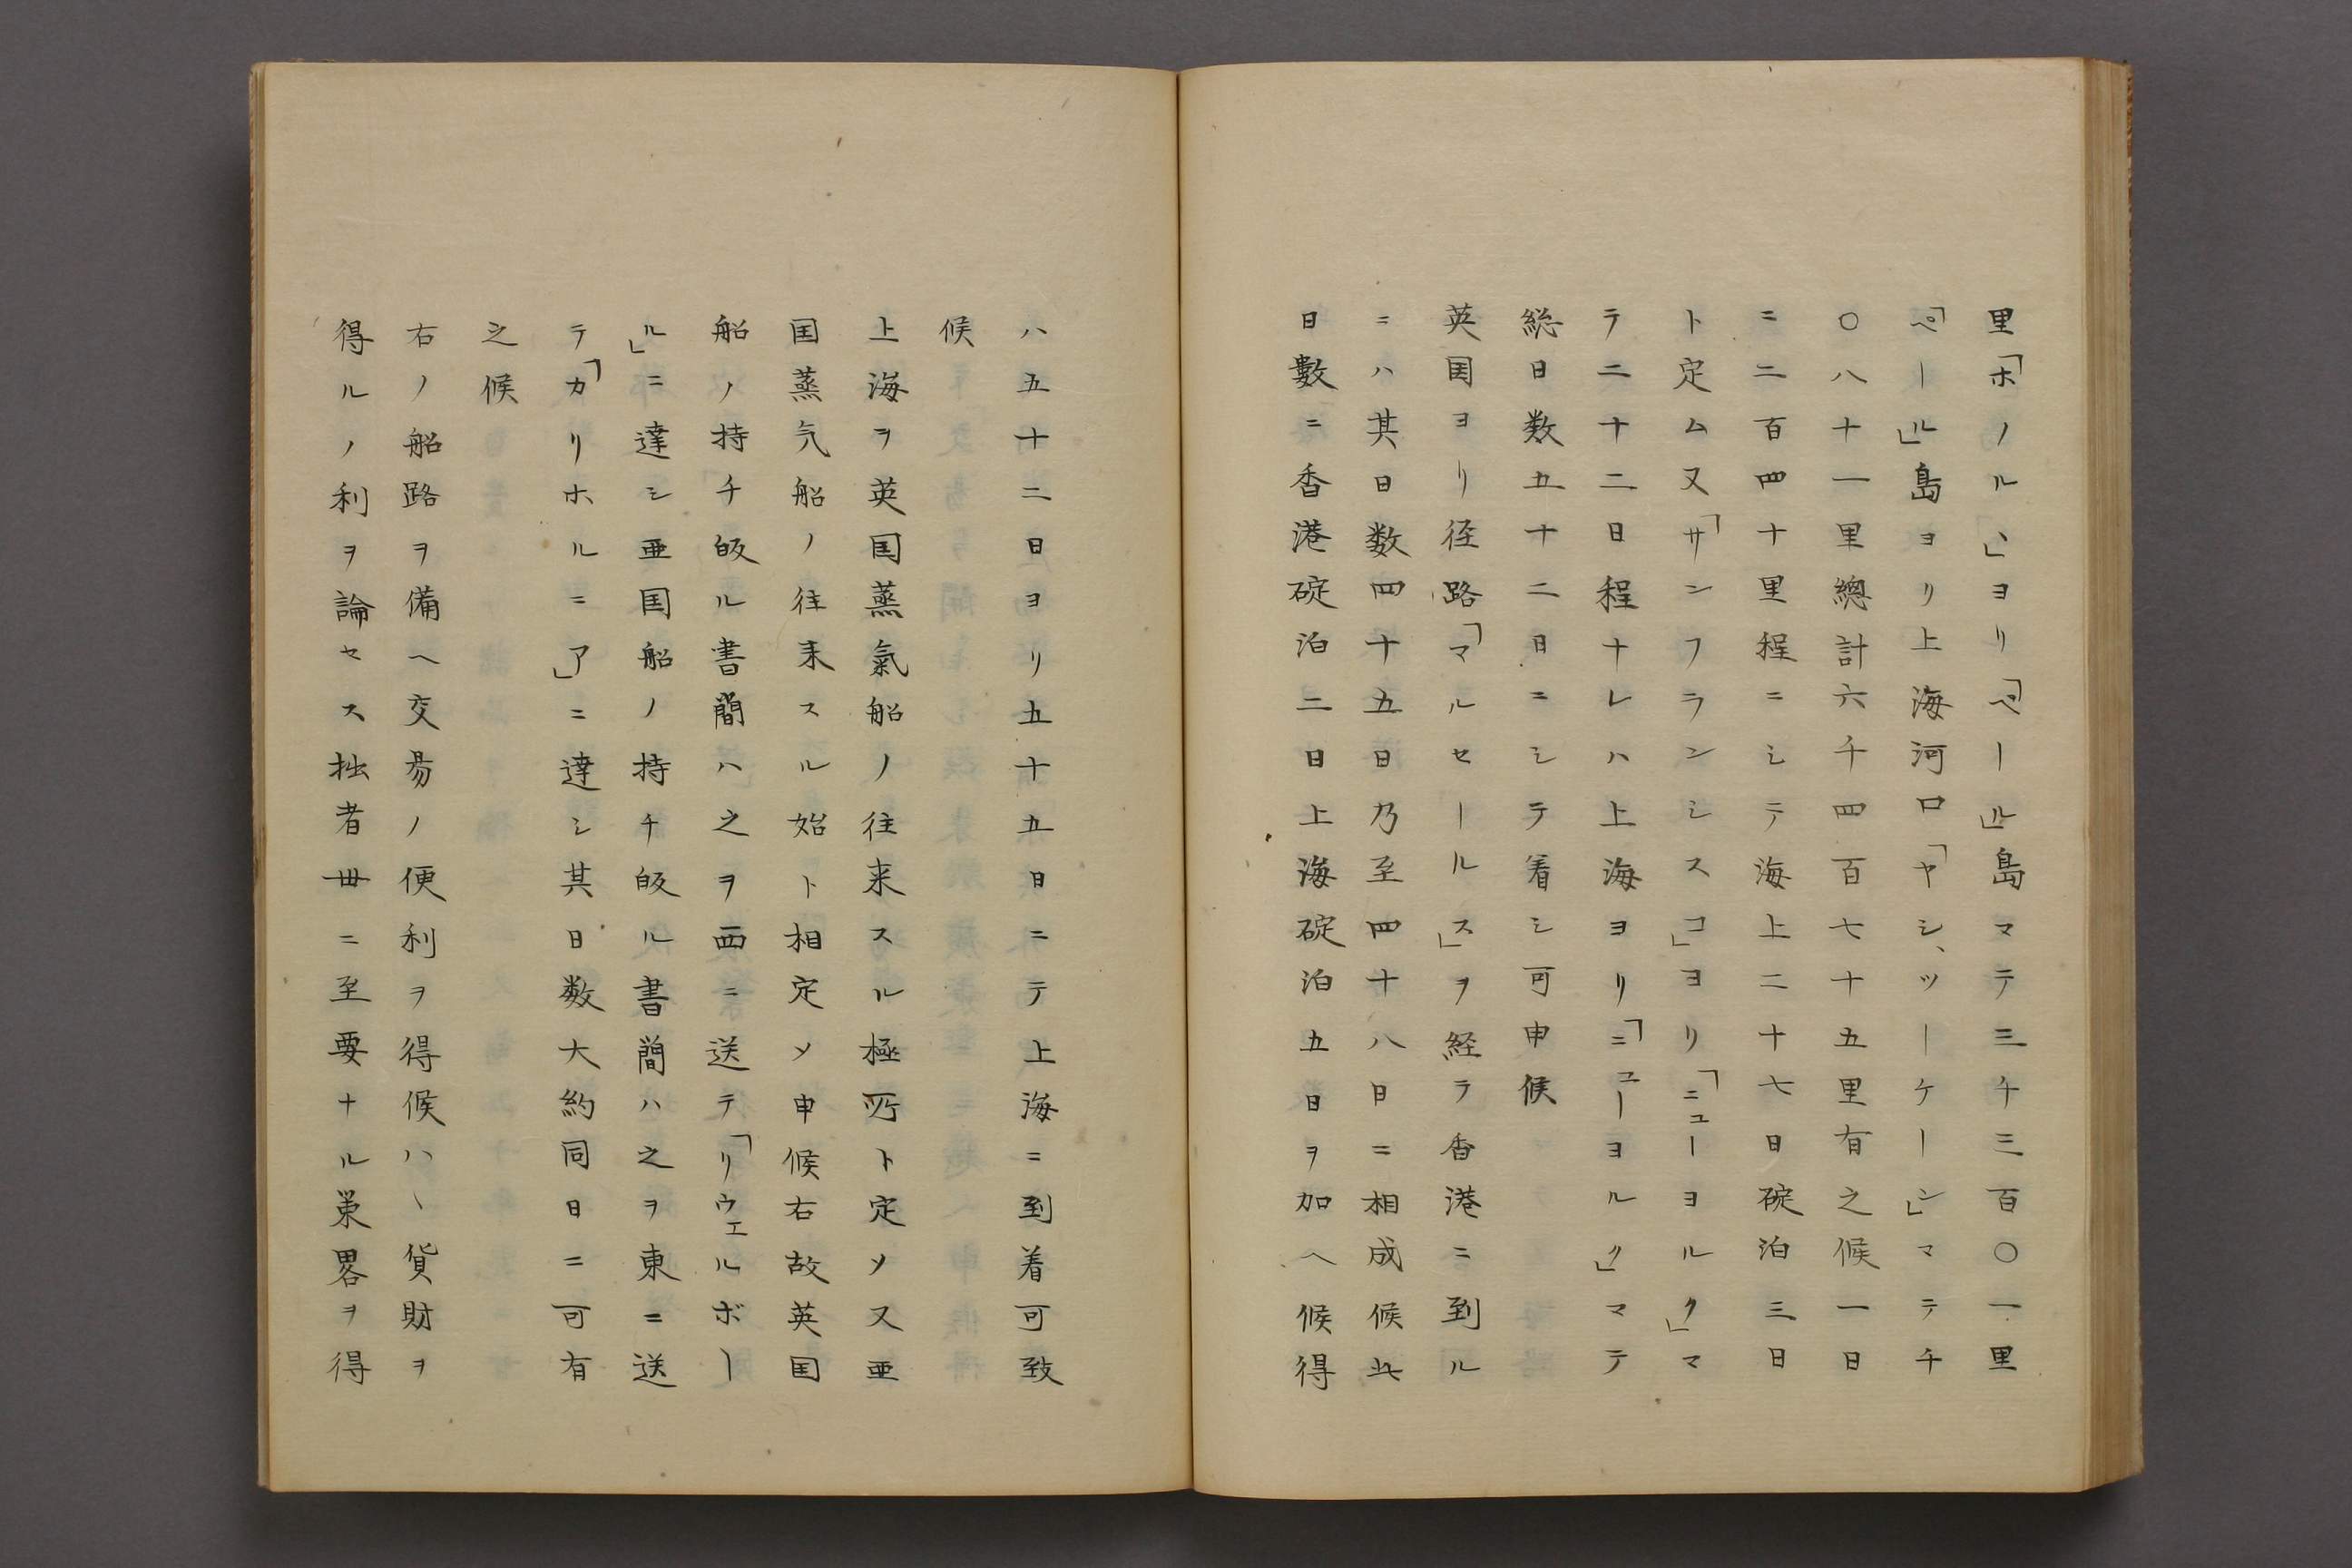 里「ホノルヽ」ヨリ「ペール」島マテ三千三百〇一里
「ペール」島ヨリ上海河口「ヤンヽツーケーン」マテ千
〇八十一里總計六千四百七十五里有之候一日
ニ二百四十里程ニシテ海上二十七日碇泊三日
ト定ム又「サンフランシスコ」ヨリ「ニューヨルク」マ
テ二十二日程ナレハ上海ヨリ「ニューヨルク」マテ
総日数五十二日ニシテ着シ可申候
英国ヨリ径路「マルセールス」ヲ経テ香港ニ到ル
ニハ其日数四十五日乃至四十八日ニ相成候此
日數ニ香港碇泊二日上海碇泊五日ヲ加ヘ候得
ハ五十二日ヨリ五十五日ニテ上海ニ到着可致
候
上海ヲ英国蒸氣船ノ往来スル極所ト定メ又亜
国蒸気船ノ往来スル始ト相定メ申候右故英国
船ノ持チ皈ル書簡ハ之ヲ西ニ送テ「リウェルボー
ル」ニ達シ亜国船ノ持チ皈ル書簡ハ之ヲ東ニ送
テ「カリホルニア」ニ達シ其日数大約同日ニ可有
之候
右ノ船路ヲ備ヘ交易ノ便利ヲ得候ハヽ貨財ヲ
得ルノ利ヲ論セス拙者丗ニ至要ナル策畧ヲ得